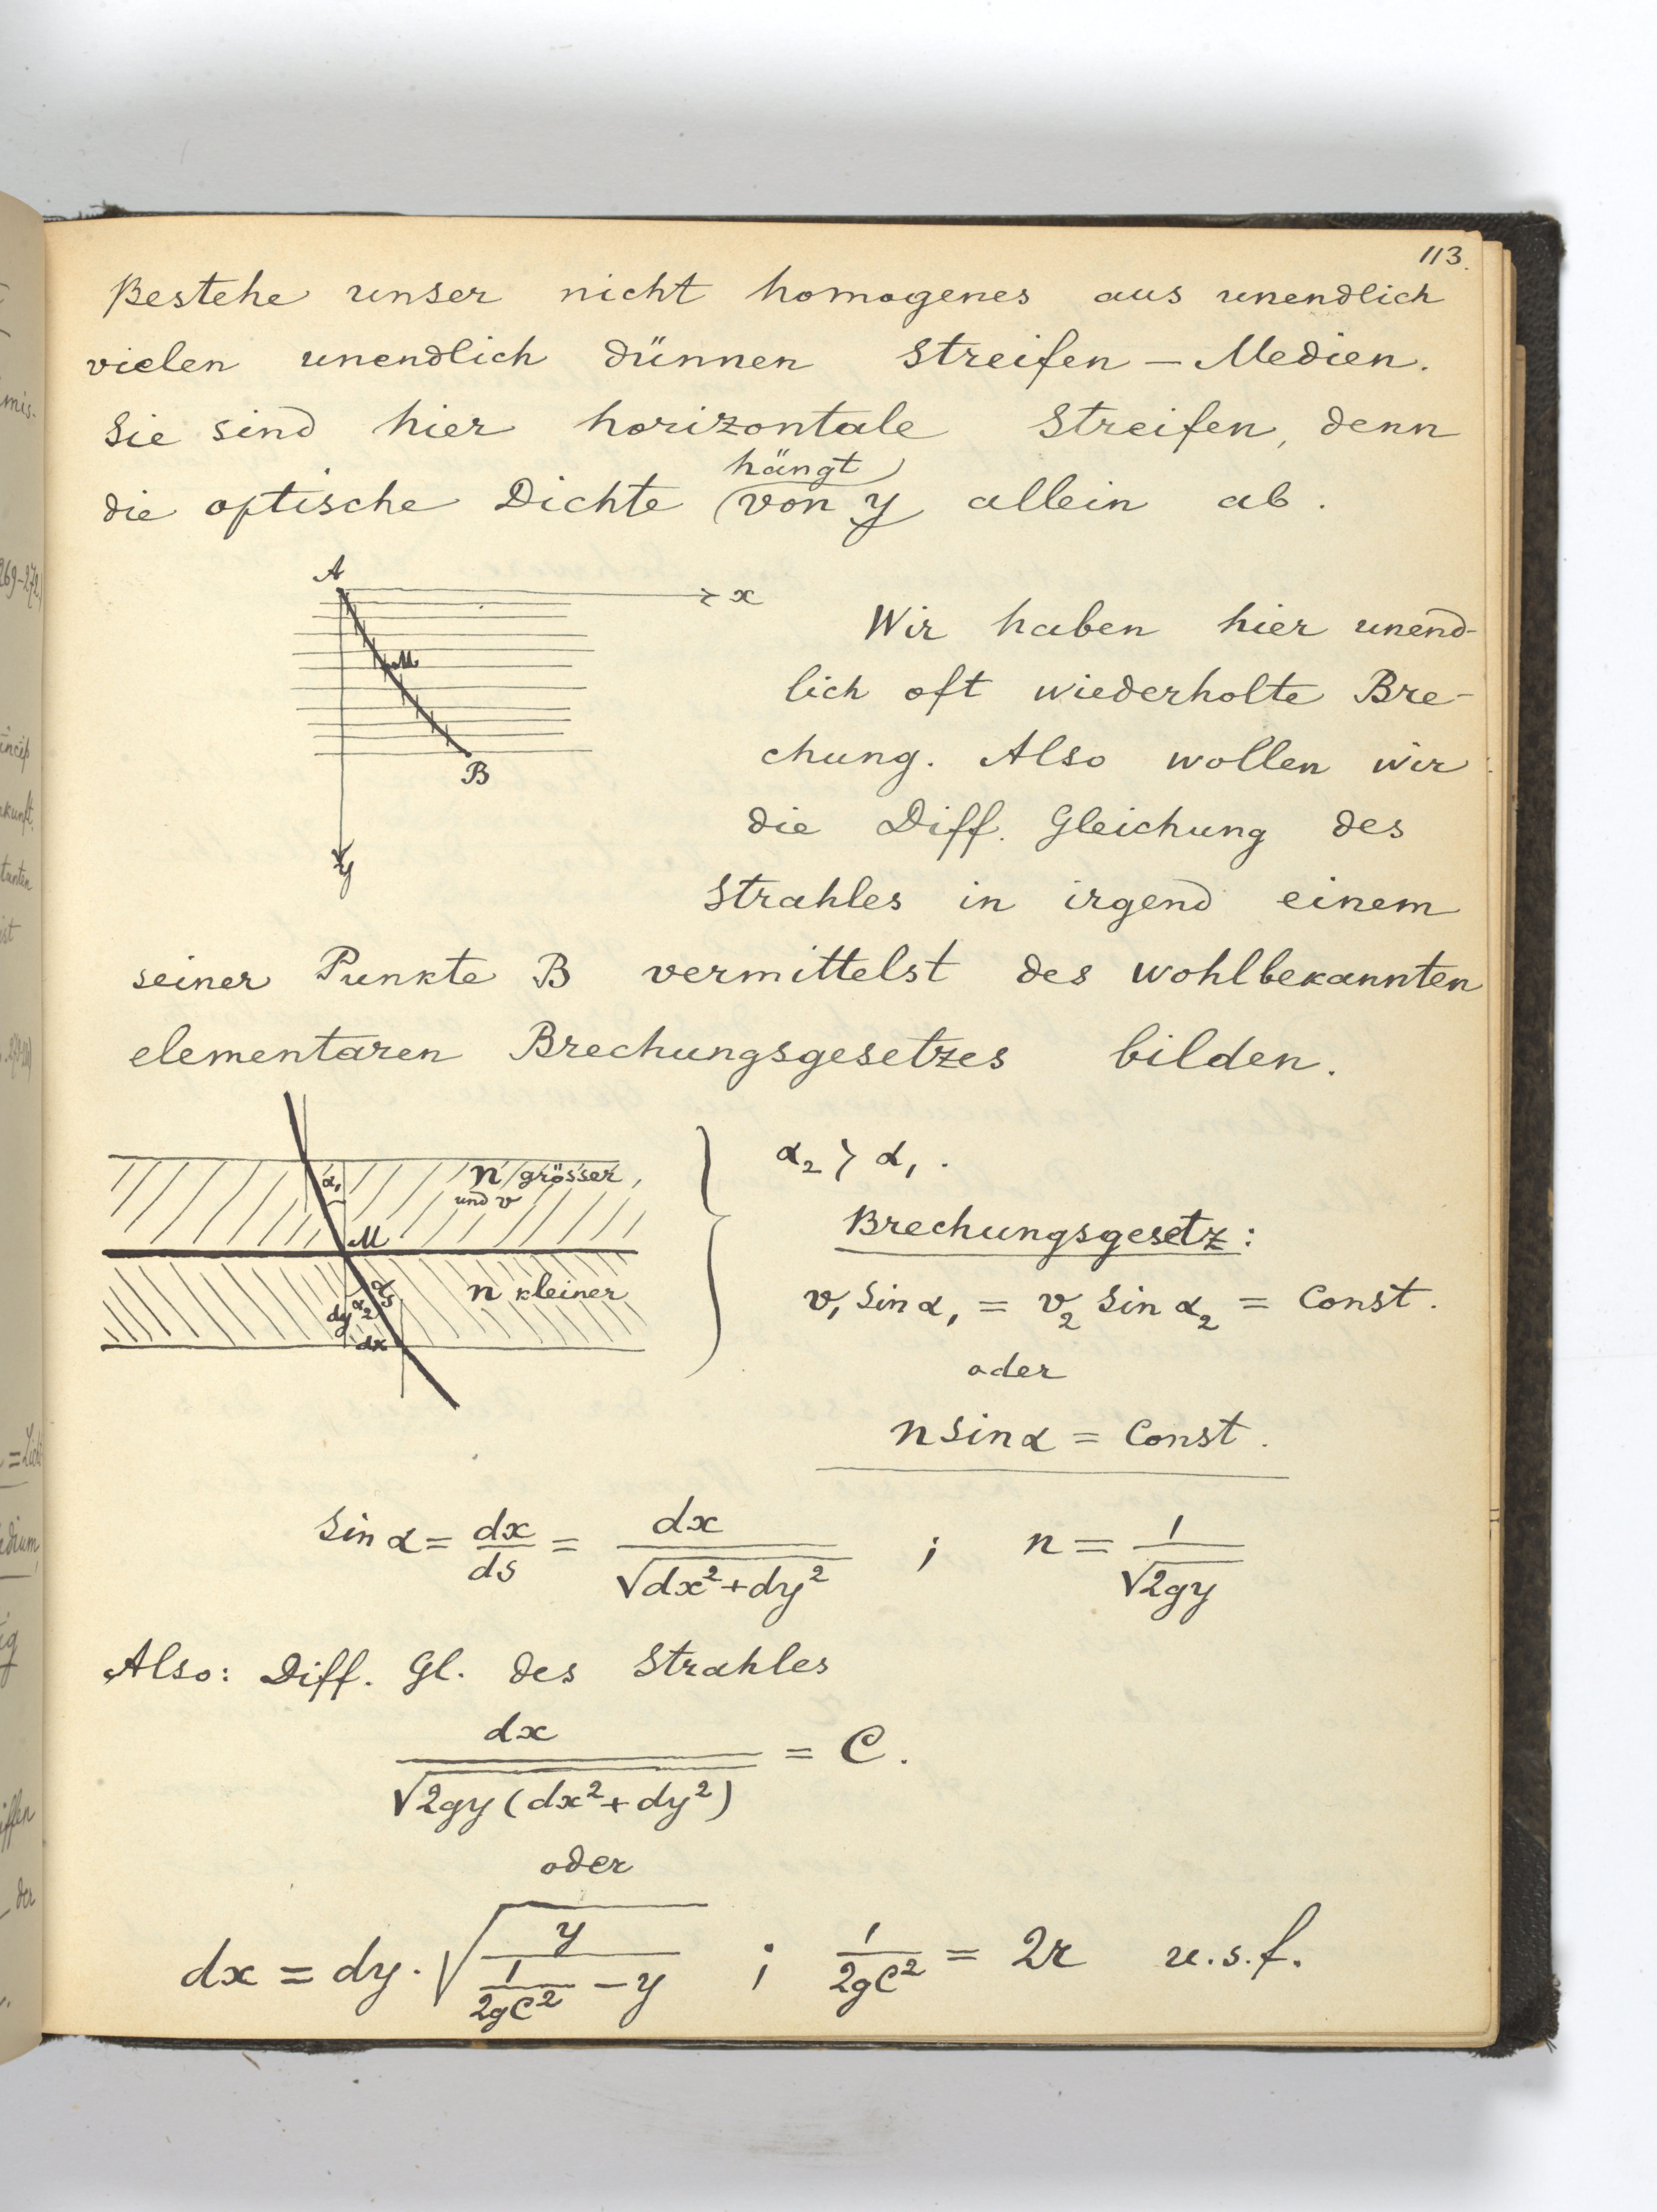 113.
Bestehe unser nicht homogenes aus unendlich
vielen unendlich dünnen Streifen – Medien.
Sie sind hier horizontale Streifen, denn
hängt
die optische Dichte (von y) allein ab.
A
x
M
B
y
Wir haben hier unend-
lich oft wiederholte Bre-
chung. Also wollen wir
die Diff. Gleichung des
Strahles in irgend einem
seiner Punkte B vermittelst des wohlbekannten
elementaren Brechungsgesetzes bilden.
α₁
n grösser,
und v
M
n kleiner
dy α₂ ds
dx
α₂ > α₁.
Brechungsgesetz:
v₁ Sin α₁ = v₂ Sin α₂ = Const.
oder
n Sin α = Const.
Sin α = dx/ds = dx/√(dx²+dy²) ; n = 1/√(2gy)
Also: Diff. Gl. des Strahles
dx/√(2gy(dx²+dy²)) = C.
oder
dx = dy.√(y/(1/(2gC²) – y)) ; 1/(2gC²) = 2r u.s.f.